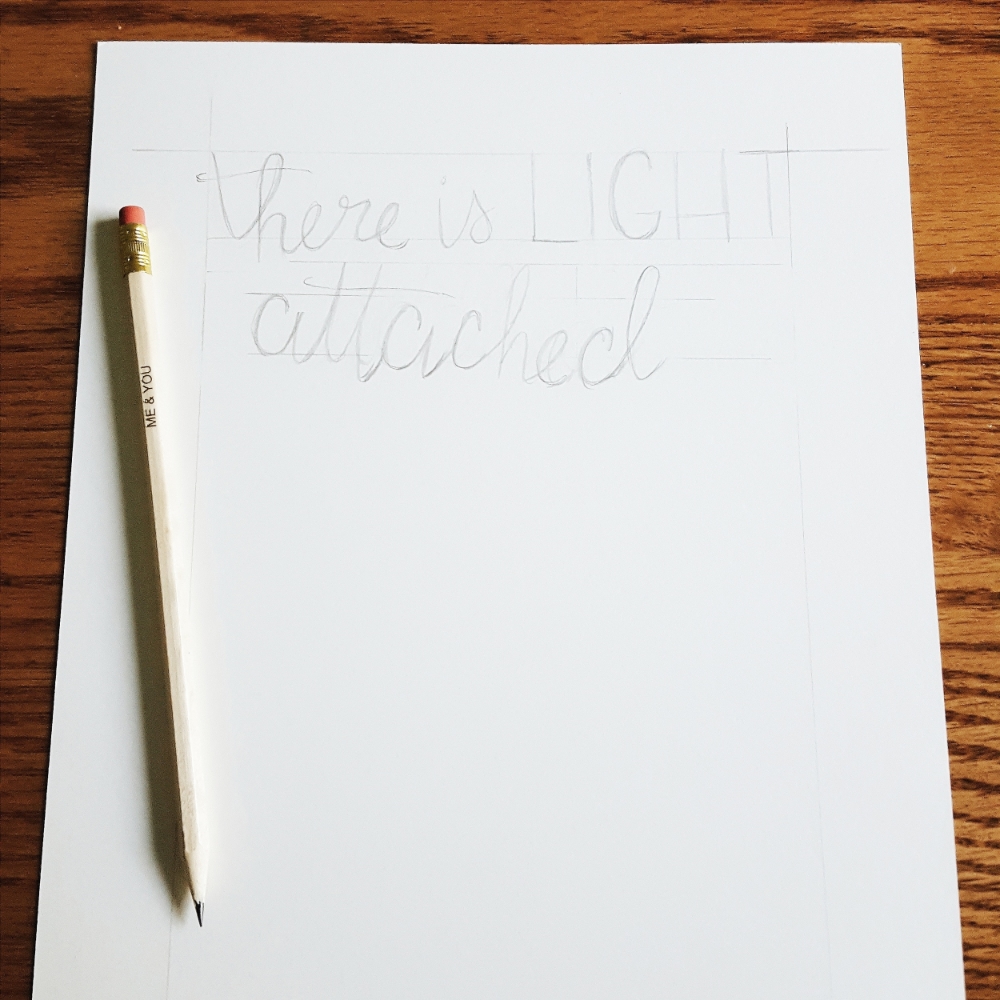 there is LIGHT
attached
ME & YOU